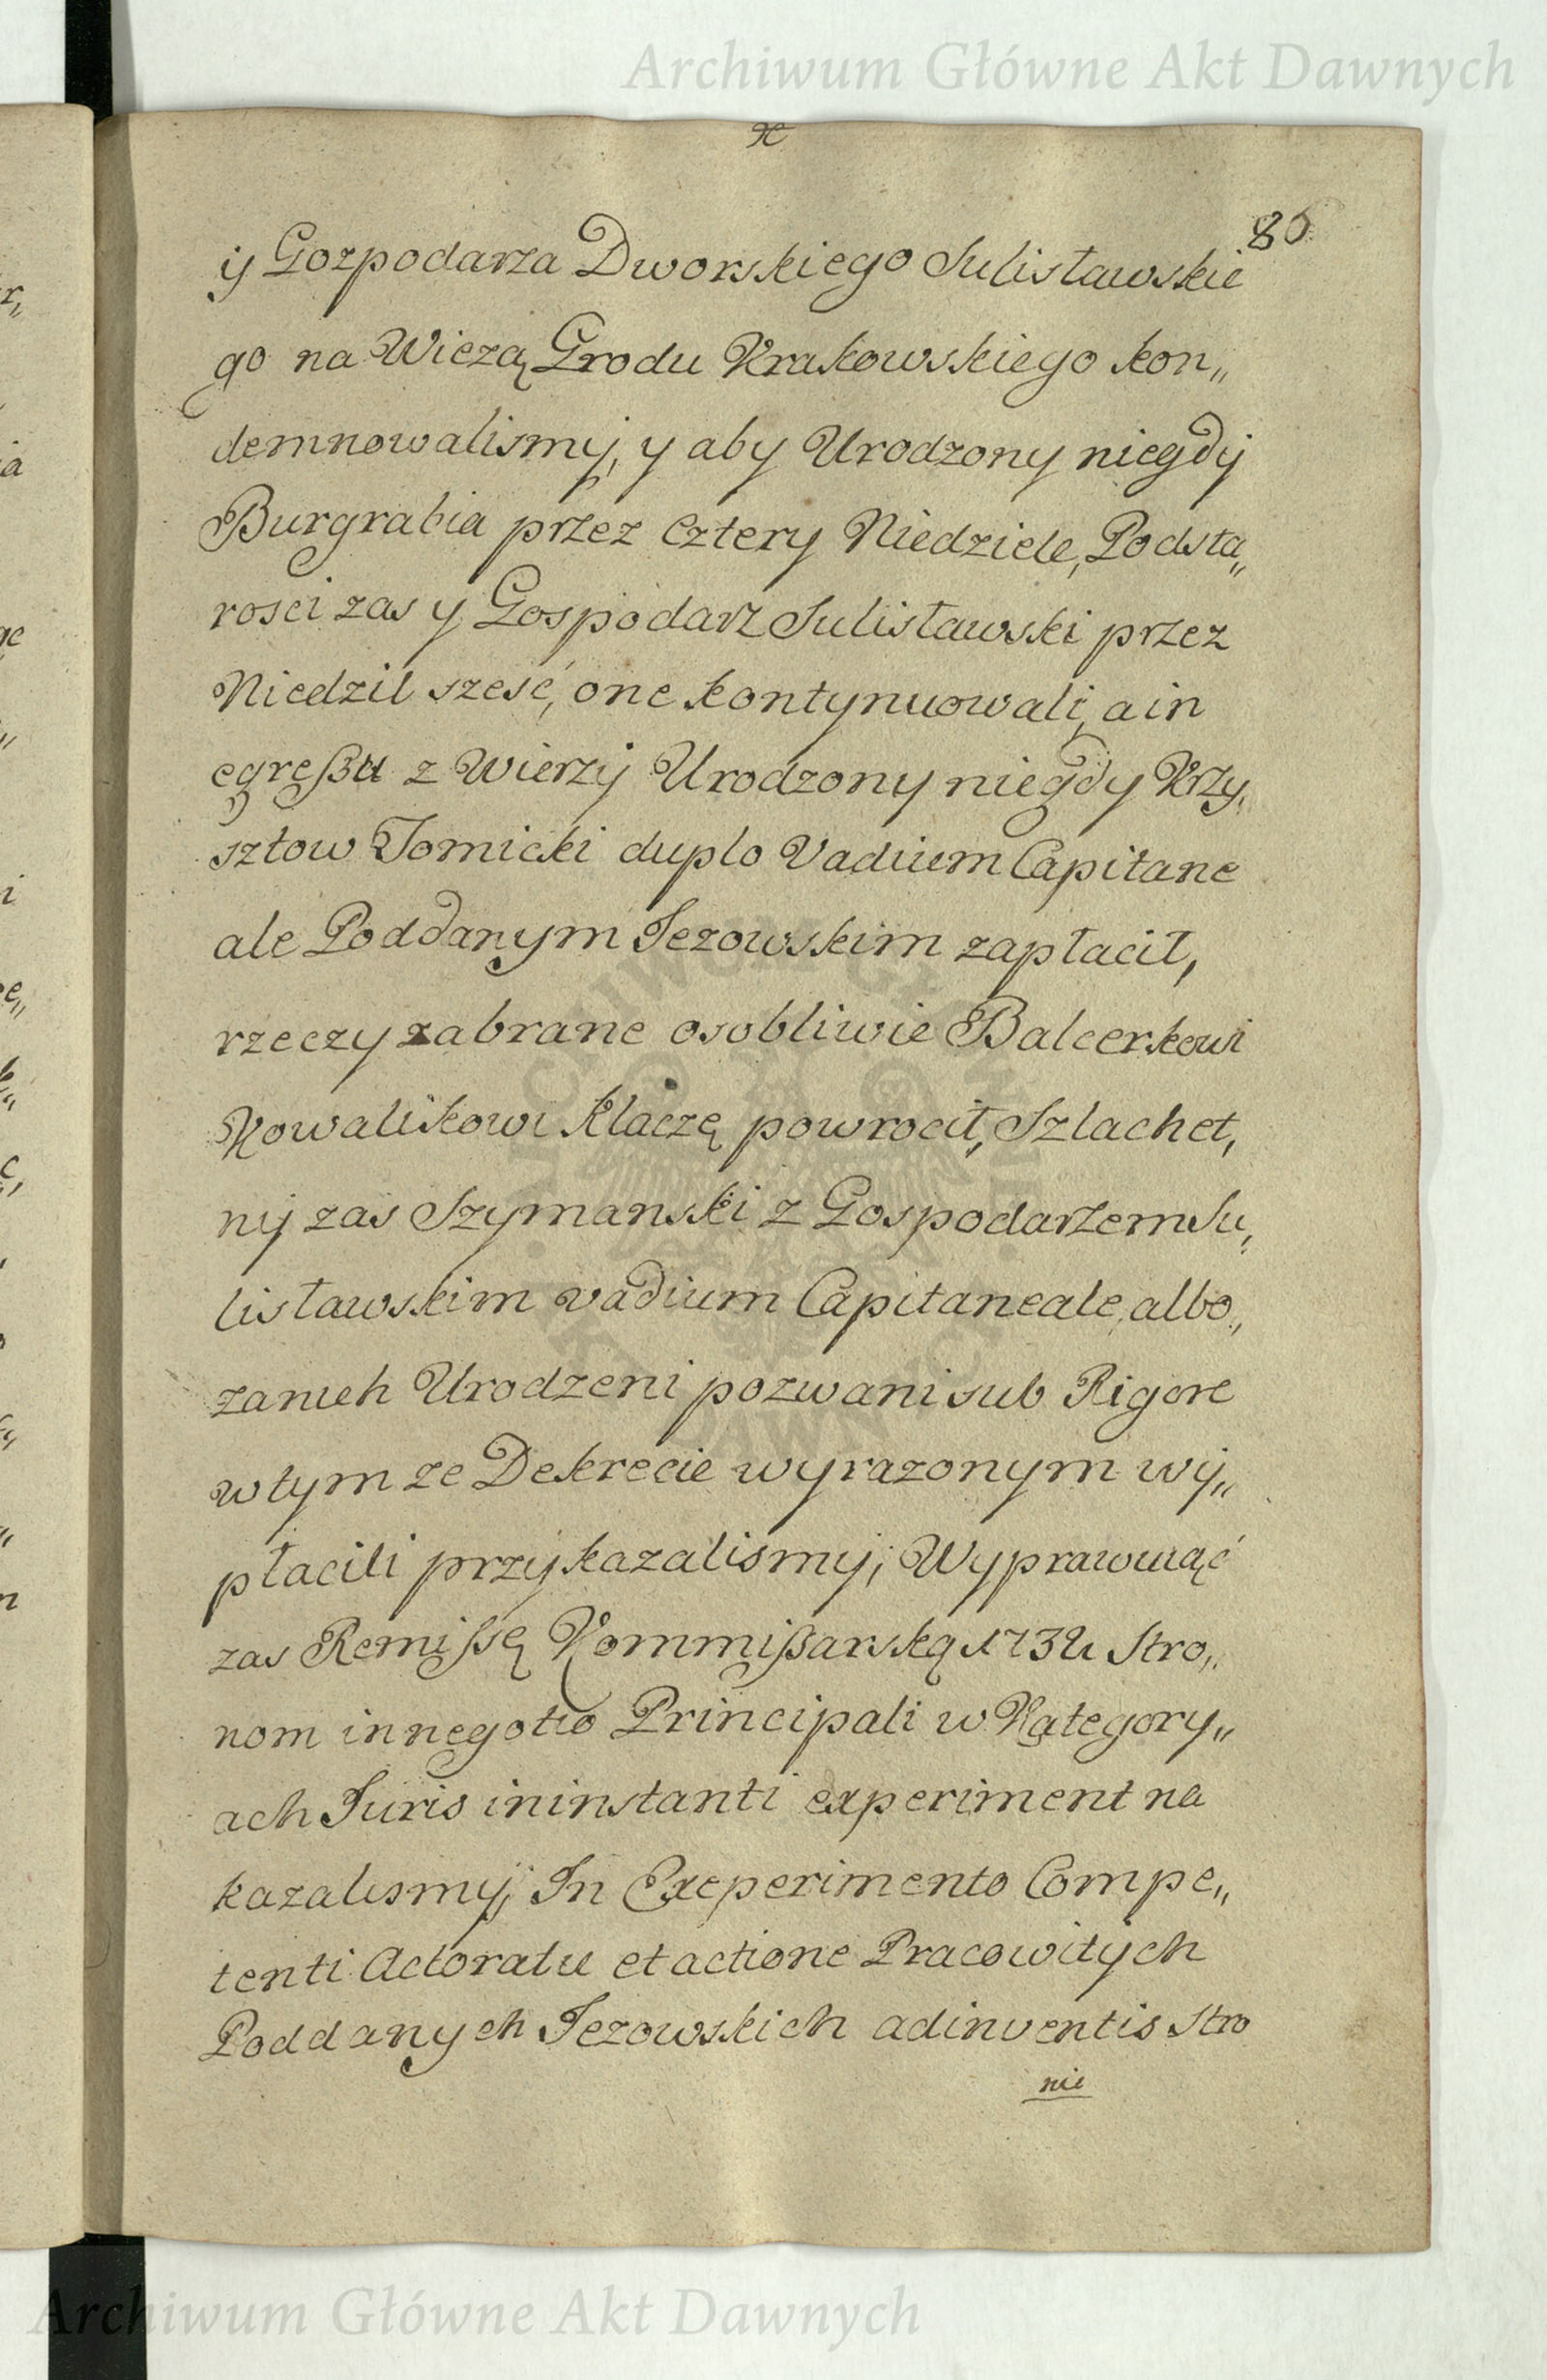 Archiwum Główne Akt Dawnych
80
ÿ Gozpodarza Dworskiego Sulisławskie
go na Wiezą Grodu Krakowskiego kon„
demnowalismÿ, y aby Urodzony niegdÿ
Burgrabia przez cztery Niedziele, Podsta„
rosci zas y Gospodarz Sulisławski przez
Niedzil sześć, one kontynuowali, a in
egreßu z Wierzÿ Urodzony niegdy Krzy„
sztow Tomicki duplo Vadium Capitane
ale Poddanym Jezowskim zapłacił,
rzeczy zabrane osobliwie Balcerkowi
Kowalikowi klaczę powrocił, Szlachet„
nÿ zas Szymanski z Gospodarzem Su„
lisławskim vadium Capitaneale, albo„
zanich Urodzeni pozwani sub Rigore
wtym ze Dekrecie wyrazonym wÿ„
płacili przÿkazalismÿ; Wyprawuiąć
zas Remißę Kommißarską 1732 Stro„
nom in negotio Principali w Kategory„
ach Juris in instanti experiment na
kazalismÿ, In Exeperimento Compe„
tenti Actoratu et actione Pracowitÿch
Poddanych Jezowskich adinventis Stro
nie
Archiwum Główne Akt Dawnych